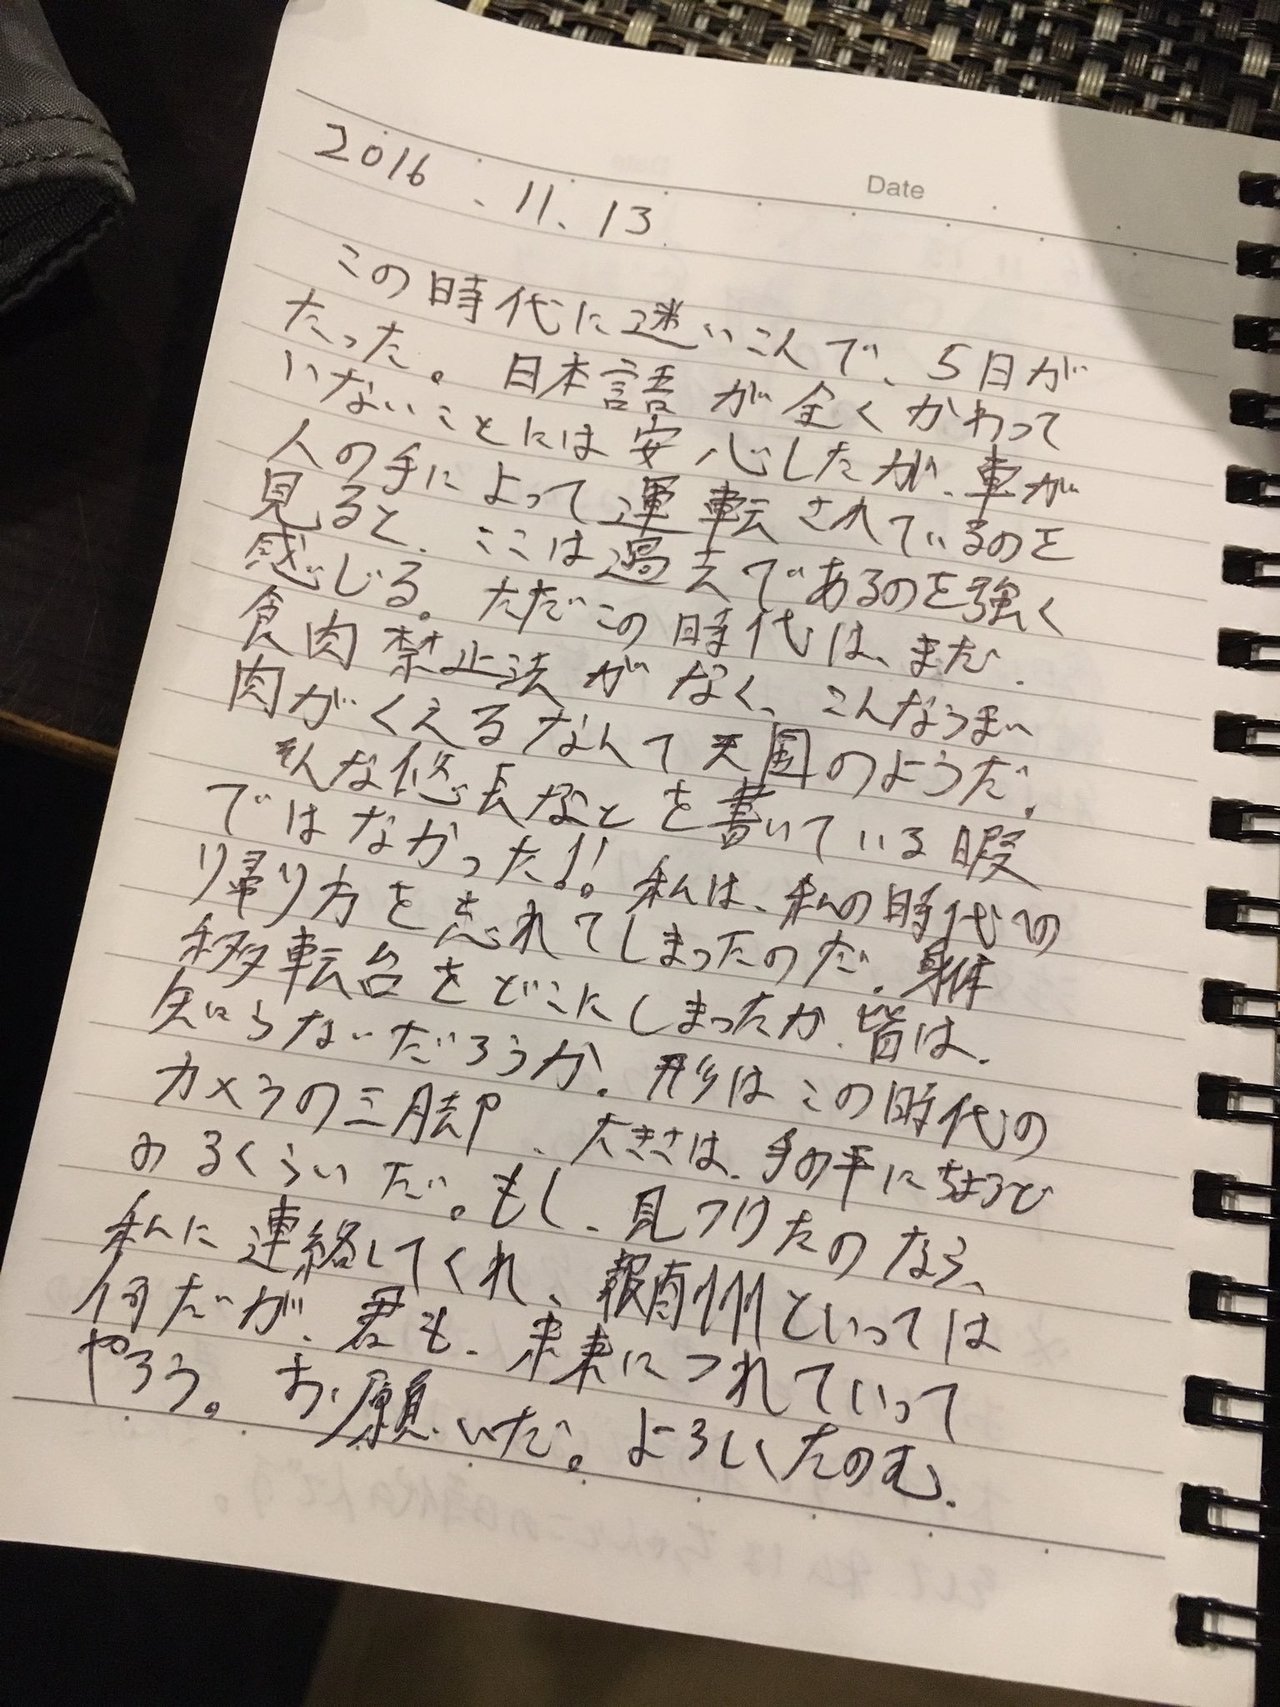 Date
2016.11.13
この時代に迷いこんで、5日が
たった。日本語が全くかわって
いないことには安心したが、車が
人の手によって運転されているのを
見ると、ここは過去であるのを強く
感じる。ただこの時代は、まだ、
食肉禁止法がなく、こんなうまい
肉がくえるなんて天国のようだ。
そんな悠長なことを書いている暇
ではなかった!!私は、私の時代への
り帰り方を忘れてしまったのだ。身体
移転台をどこにしまったか、皆は、
知らないだろうか。形はこの時代の
カメラの三脚、大きさは、手の平にちょうど
のるくらいだ。もし、見つけたのなら、
私に連絡してくれ、報酬といっては
何だが、君も、未来につれていって
やろう。お願いだ。よろしくたのむ。